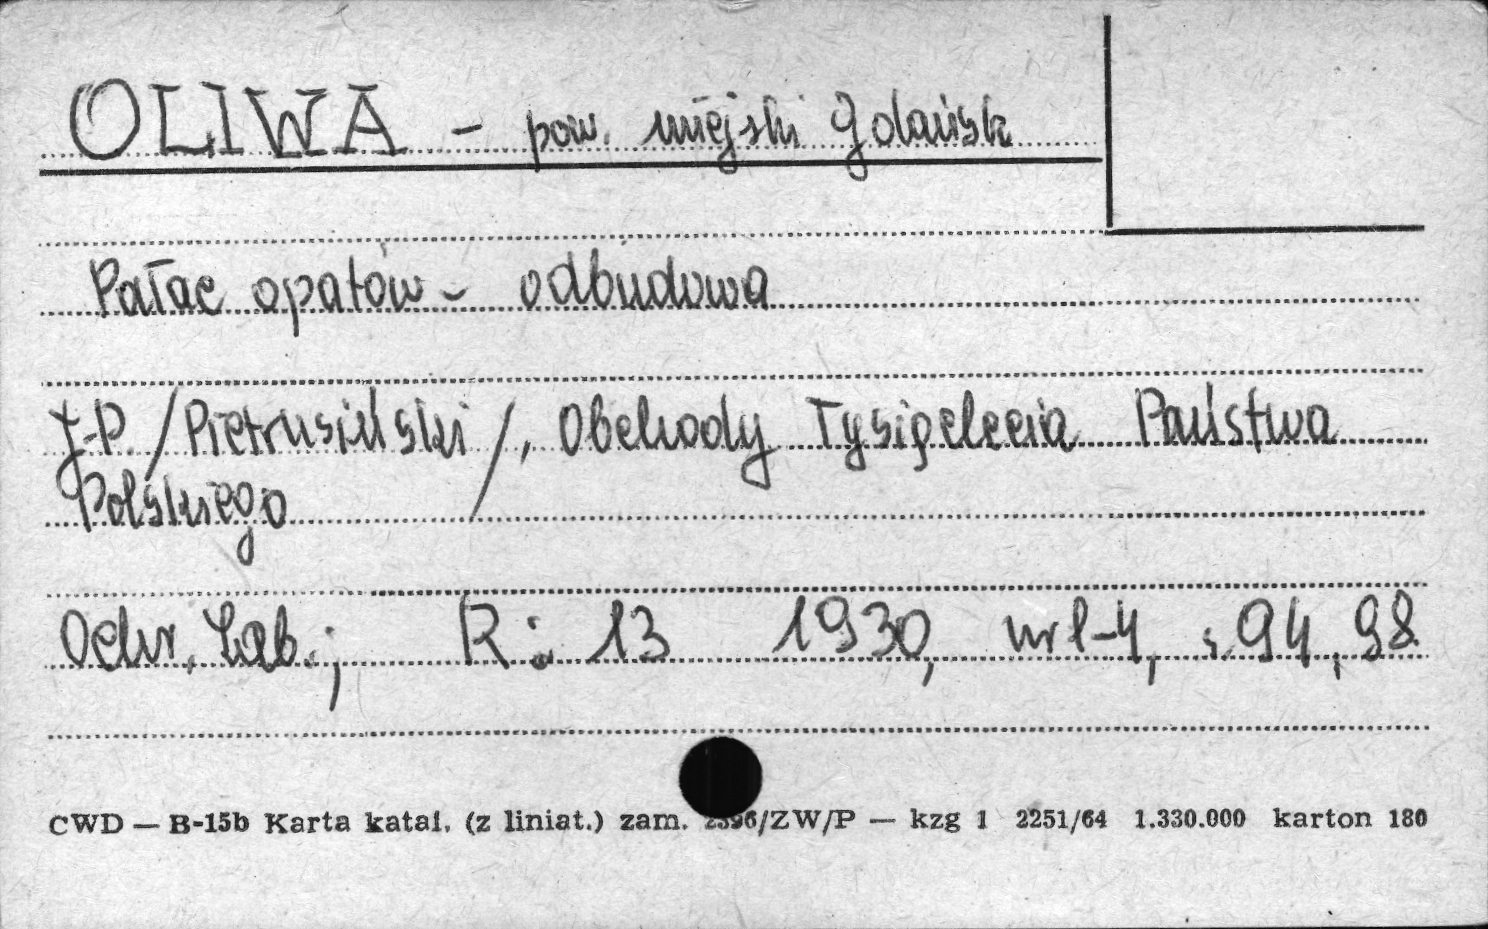 OLIWA - pow. miejski Gdańsk
Pałac opatów - odbudowa
J.P. /Pietrusiński/, Obchody Tysiąclecia Państwa
Polskiego
Ochr. Zab.; R: 13 1930, nr 1-4, s. 94, 98
CWD — B-15b Karta katal. (z liniat.) zam. 2396/ZW/P — kzg 1 2251/64 1.330.000 karton 180